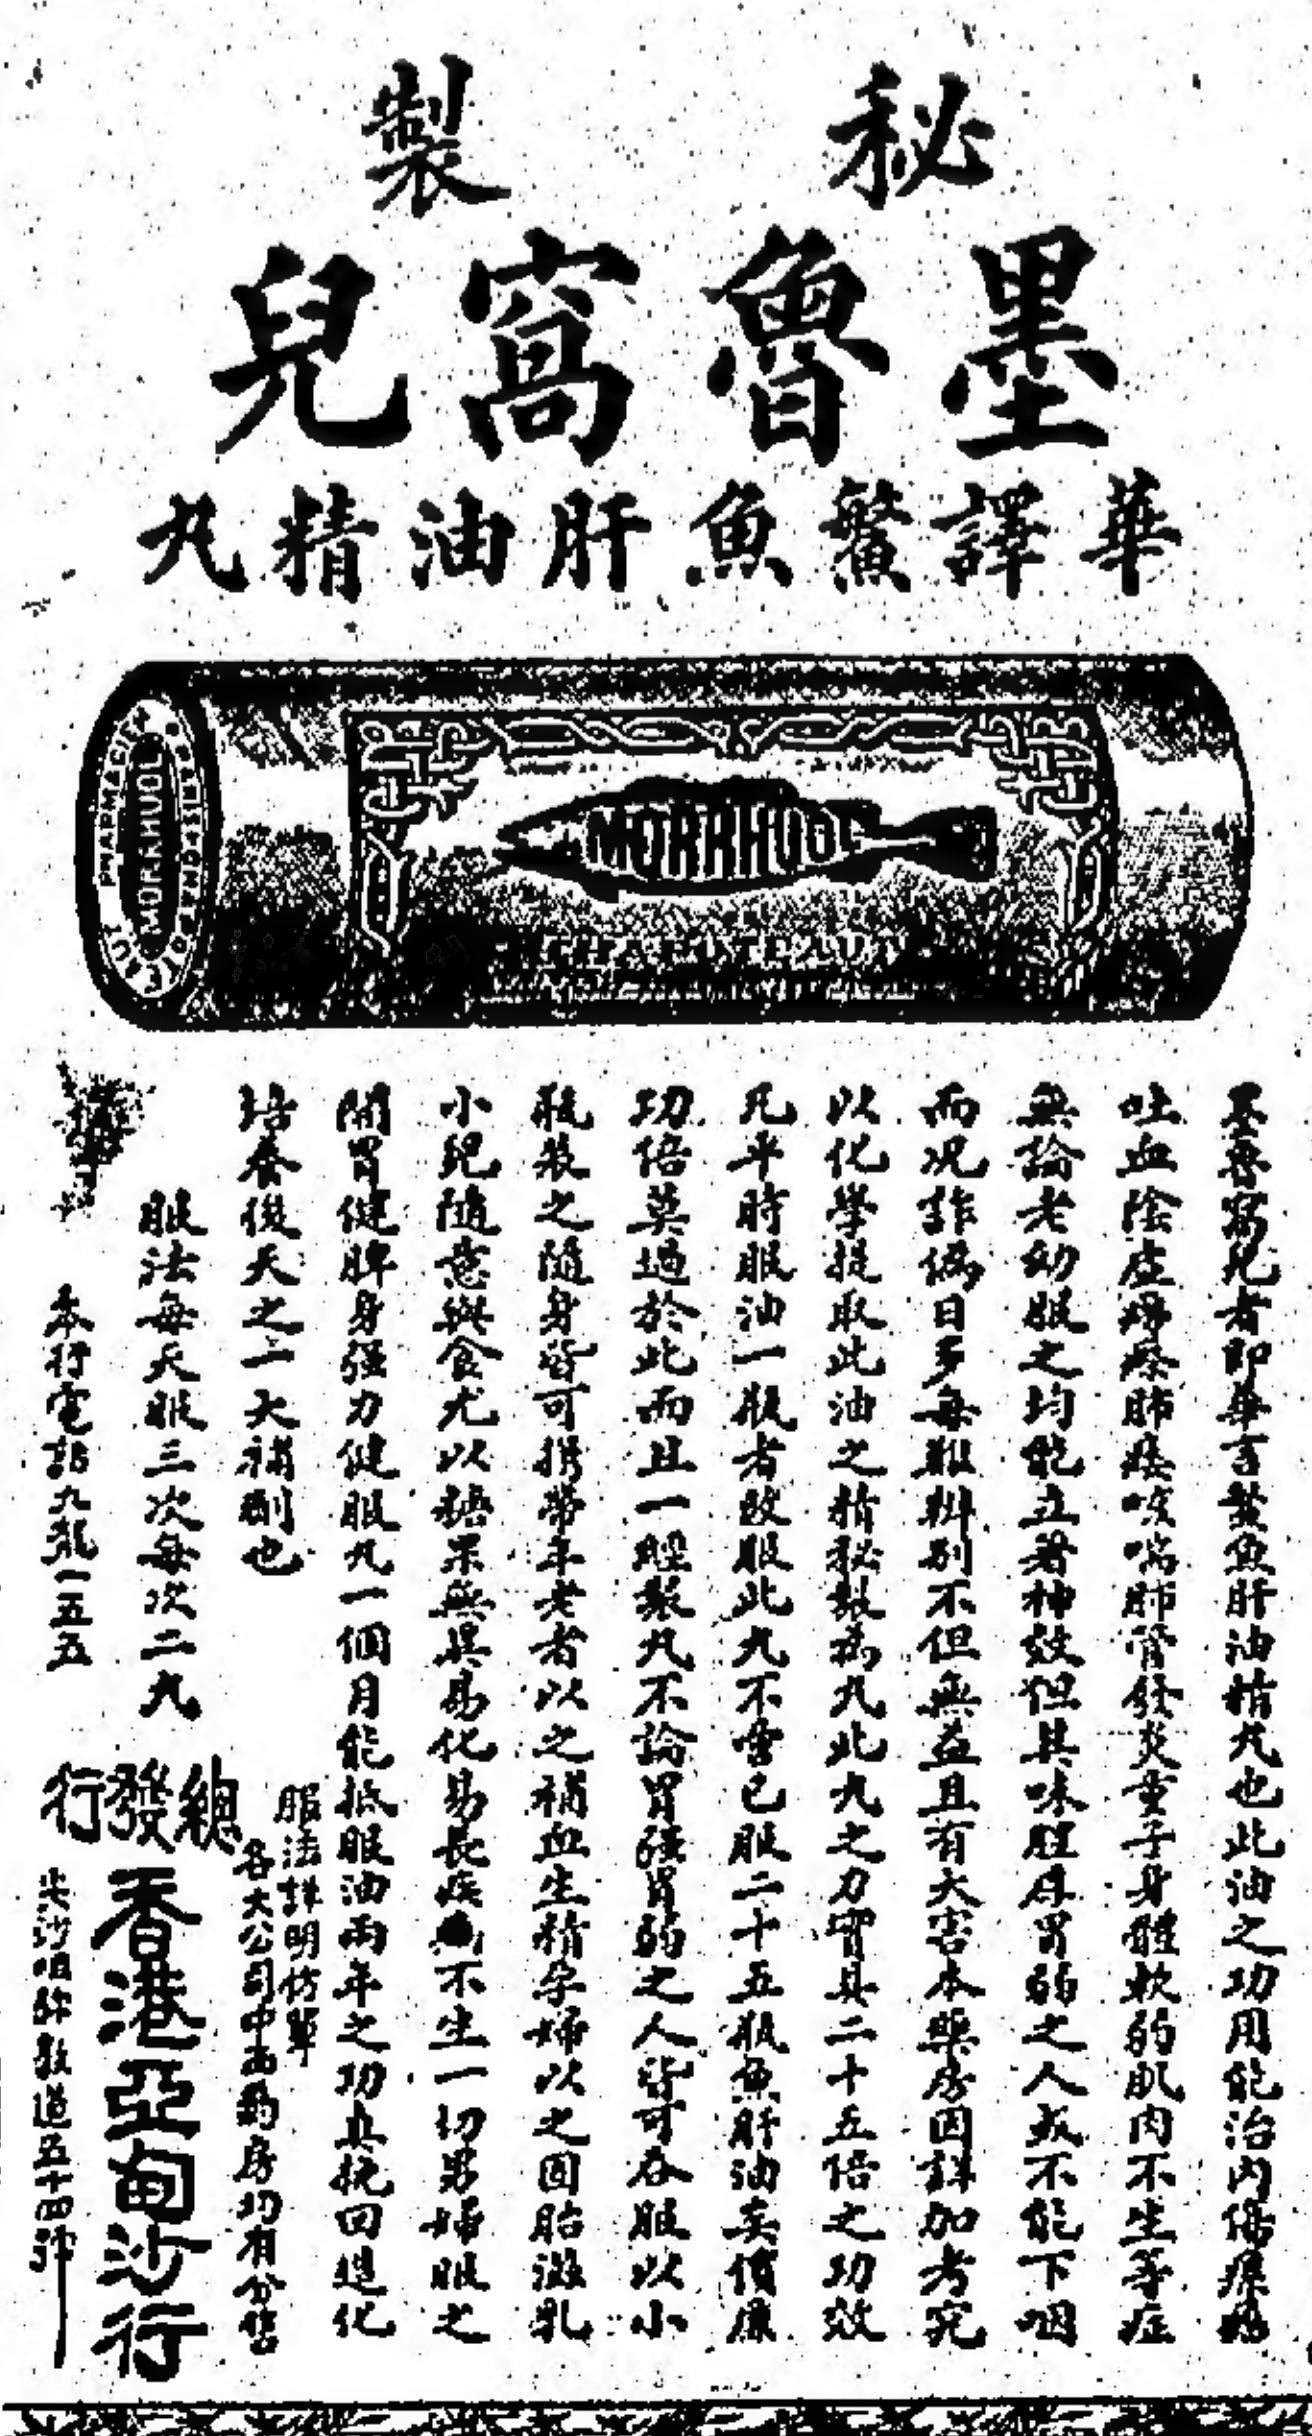 秘製
墨魯窩兒
華譯鰵魚肝油精丸
PHARMACIE
MORRHUOL
MORRHUOL
墨魯窩兒者即華言鰵魚肝油精丸也此油之功用能治內傷
吐血陰虛癆瘵肺痿咳喘肺管發炎童子身體軟弱肌肉不生等症
無論老幼服之均能立著神效但其味腥厚胃弱之人或不能下咽
而况詐偽日多每難辨别不但無益且有大害本藥房因詳加考究
以化學提取此油之精秘製為丸此丸之力實具二十五倍之功效
凡平時服油一瓶者改服此丸不啻已服二十五瓶魚肝油矣價廉
功倍莫過於此而且一經製丸不論胃强胃弱之人皆可吞服以小
瓶裝之隨身皆可携帶年老者以之補血生精孕婦以之固胎滋乳
小兒隨意與食尤以糖果無異易化易長疾不生一切男婦服之
開胃健脾身强力健服丸一個月能抵服油兩年之功真挽回造化
培養後天之一大補劑也
服法每天服三次每次二丸
服法詳明仿單
各大公司中西药房均有分售
總發行
香港亞甸沙行
本行電話九龍一五五
尖沙咀弥敦道五十四號